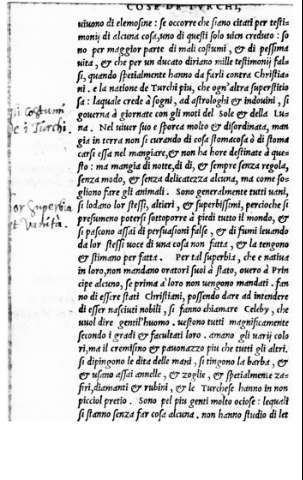 COSE DE TVRCHI,
uiuono di elemosine: se occorre che siano citati per testi=
monij di alcuna cosa, uno di questi solo uien creduto: so
no per maggior parte di mali costumi, & di pessima
uita, & che per un ducato diriano mille testimonij fal
si, quando spetialmente hanno da farli contra Christia=
ni. e la natione de Turchi piu, che ogn'altra superstitio
sa: laquale crede à sogni, ad astrologhi & indouini, si
gouerna à giornate con gli moti del Sole & della Lu=
na. Nel uiuer suo e sporca molto & disordinata, man
gia in terra non si curando di cosa stomacosa ò di stoma
carsi essa nel mangiare, & non ha hore destinate à que=
sto: ma mangia di notte, di dì, & sempre senza regola,
senza modo, & senza delicatezza alcuna, ma come so=
gliono fare gli animali. Sono generalmente tutti uani,
si lodano lor stessi, altieri, & superbissimi, percioche si
presumeno poter si sottoporre à piedi tutto il mondo, &
si pascono assai di persuasioni false, & di fumi leuando
da lor stessi uoce di una cosa non fatta, & la tengono
& stimano per fatta. Per tal superbia, che e natiua
in loro, non mandano oratori suoi à stato, ouero à Prin
cipe alcuno, se prima à loro non uengono mandati. fan
no di essere stati Christiani, possendo dare ad intendere
di esser nasciuti nobili, si fanno chiamare Celeby, che
uuol dire gentil'huomo. uestono tutti magnificamente
secondo i gradi & facultati loro. amano gli uarij colo
ri, ma il cremisino & pauonazzo piu che tutti gli altri.
si dipingono le dita delle mani, si tingono la barba, &
& usano assai annelle, & zoglie, & spetialmente za=
fri, diamanti & rubini, & le Turchese hanno in non
picciol pretio. Sono pel piu genti molto ociose: lequali
si stanno senza far cosa alcuna. non hanno studio di let
gli Costumi
de i Turchi.
lor Superbia
et Vanità.